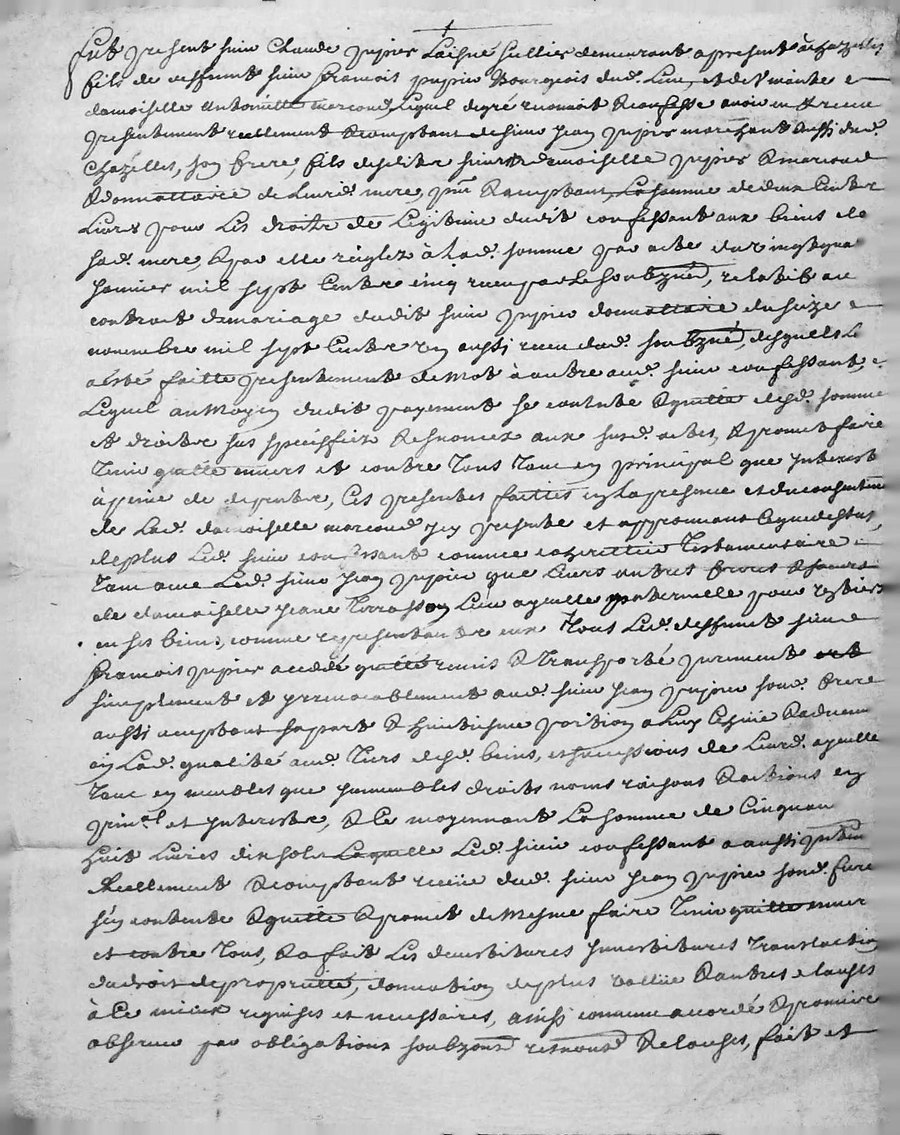 fut present sieur Claude jupier Laisné sellier demeurant apresent à chazelles
fils de deffunt sieur francois jupier Bourgeois dud. Lieu, et de vivante
damoiselle antoinette marcoud, Lequel de gré reconnoit & confesse avoir eu & receu
presentement reellement & comptant de sieur jean jupier marchant aussi dud.
Chazelles, son frere, fils desdits sieur & damoiselle jupier & marcoud
& donnattaire de leurd. mere, pnt & acceptant, La somme de deux Cents
Livres pour Les droits de Legitime dudit confessant aux biens de
sad. mere, & par elle reglez à Lad. somme par acte du vingt
janvier mil sept Cents cinq receu par Le soubzné, relatif au
contract de mariage dudit sieur jupier donnattaire du seize
novembre mil sept Cents aussi receu dud. soubzné, desquels
a esté faitte presentement de mot à autre aud. sieur confessant,
Lequel au moyen dudit payement se contente & quitte desd. somme
et droits sus speciffiez & renoncé aux susd. actes, & promet faire
tenir quitte envers et contre tous tant en principal que jnterest
à peine de depents, Ces presentes faittes en la presence et du consentement
de Lad. damoiselle marcoud jcy presente et approuvant Ce que dessus,
de plus Led. sieur confessant comme coheritier testamentaire
tant avec Led. sieur jean jupier que leurs autres freres & soeurs
de damoiselle jeane terrasson leur ayeulle paternelle pour tiers
en ses biens, comme representants eux tous Led. deffunt sieur
francois jupier a cedé quitté remis & transporté purement
simplement et jrrevocablement aud. sieur jean jupier sond. frere
aussi acceptant sa part & huitiesme portion a Luy Escheüe & advenu
en Lad. qualité aud. tiers desd. biens, et successions de Leurd. ayeulle
tant en meubles que jmmeubles droits noms raisons & actions en
prin.al et jnterests, & Ce moyennant La somme de Cinquante
huit Livres dix sols Laquelle Led. sieur confessant a aussi
Reellement & comptant receüe dud. sieur jean jupier sond. frere
s'en contente & quitte & promet de mesme faire tenir quitte envers
et contre tous, & a fait Les devestitures jnvestitures translation
du droit de proprietté, donnation de plus vallüe & autres clauses
à Ce mieux requises et necessaires, ainsi comme accordé & promise
observer par obligations soubzmons renonons & clauses, fait et